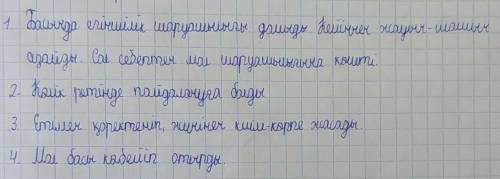 1. Басында егіншілік шаруашылығы дамыды Кейіннен жауын-шашын
азайды. Сол себептен мал шаруашылығына көшті.
2. Көлік ретінде пайдалануға болды
3. Етімен қоректеніп, жүнінен киім-көрпе жасады.
4. Мал басы көбейіп отырды.